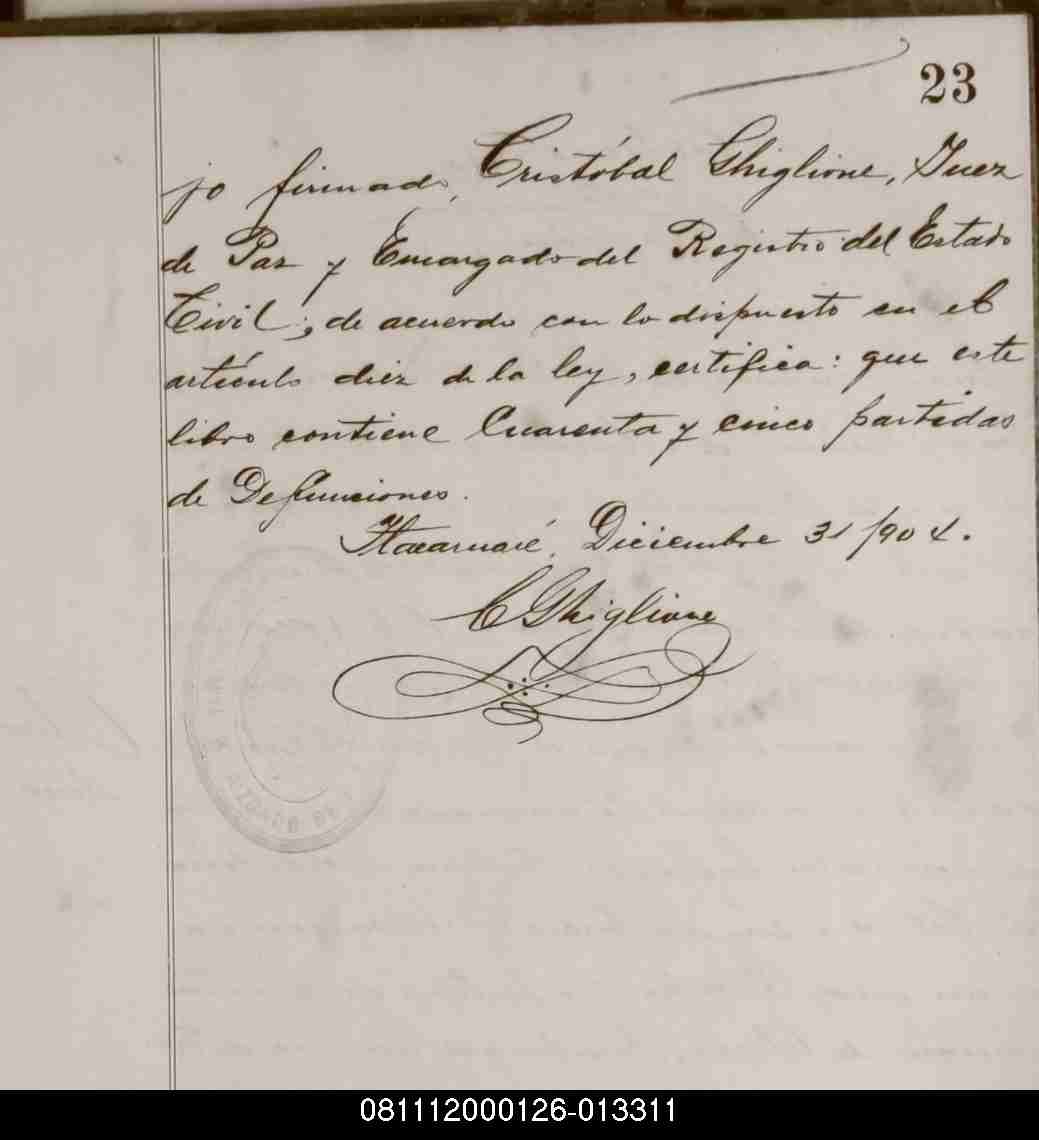 23
jo firmado, Cristóbal Ghiglione, Juez
de Paz y Encargado del Registro del Estado
Civil; de acuerdo con lo dispuesto en el
artículo diez de la ley, certifica: que este
libro contiene Cuarenta y cinco partidas
de Defunciones.
Itacaruaré, Diciembre 31/904.
C Ghiglione
JUZGADO DE
081112000126-013311